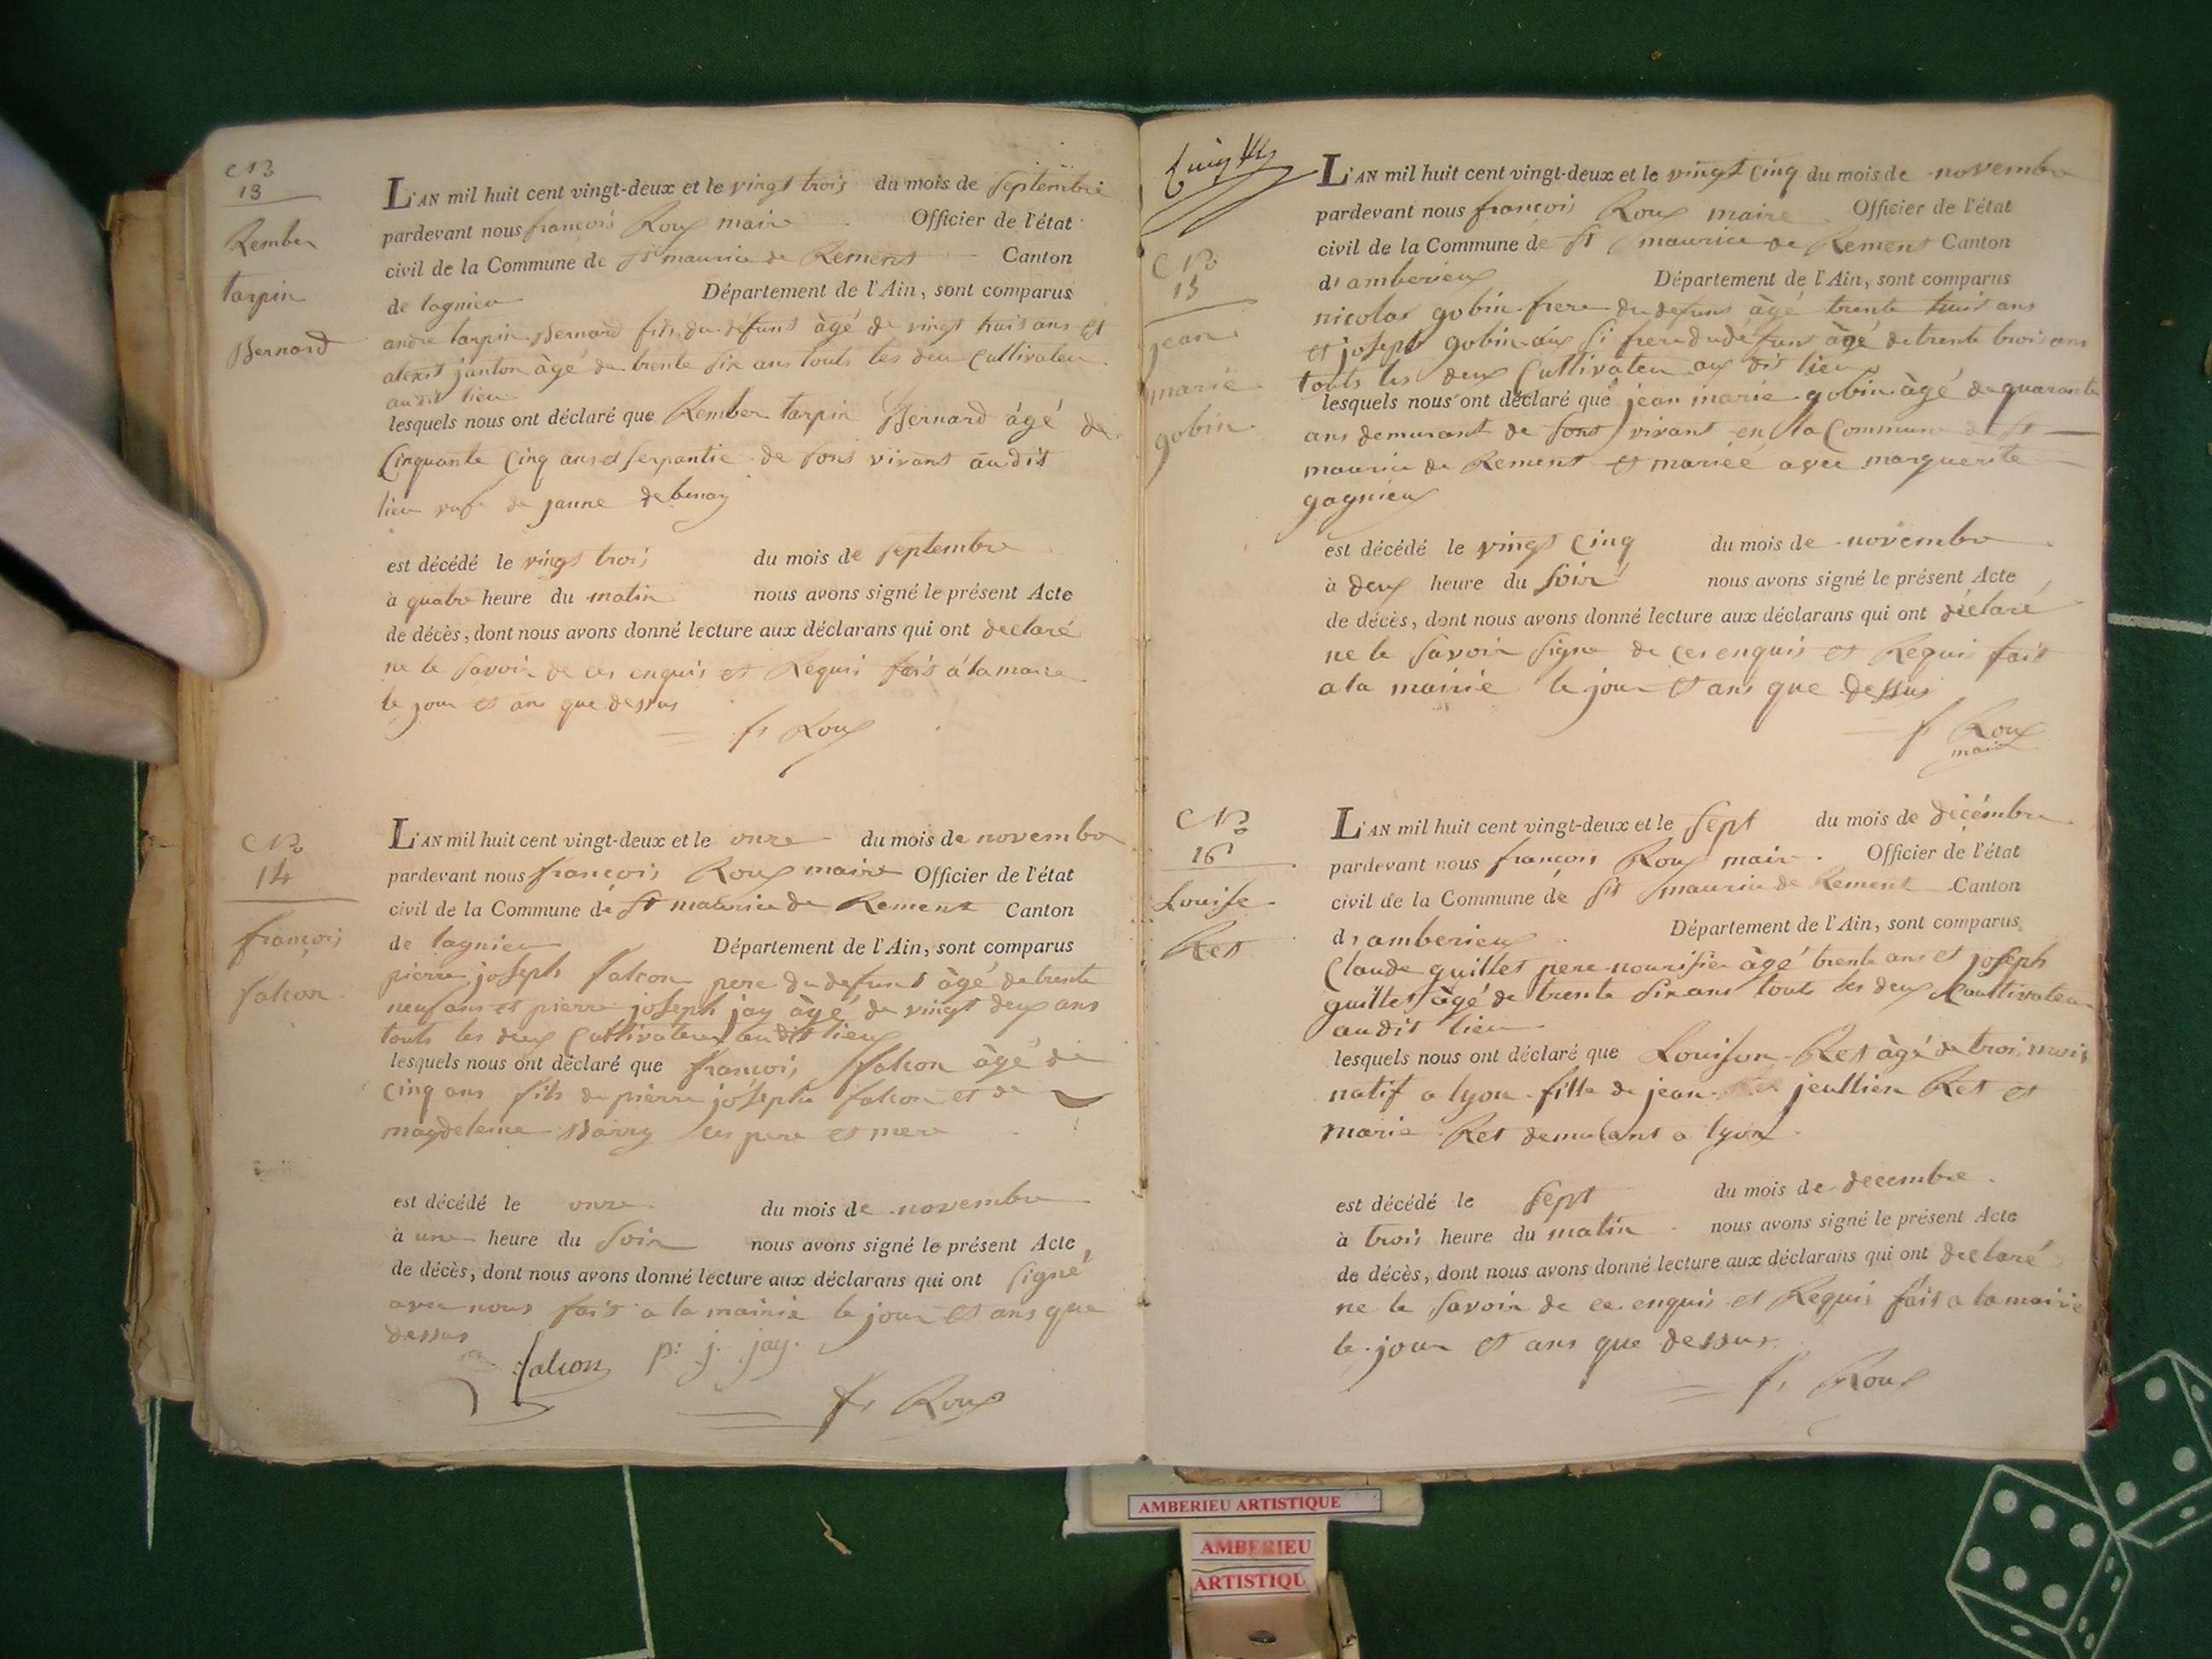 No
13
Rember
tarpin
Bernard
L'AN mil huit cent vingt-deux et le vingt trois du mois de septembre
pardevant nous francois Roux maire Officier de l'état
civil de la Commune de St maurice de Remens Canton
de lagnieu Département de l'Ain, sont comparus
andre tarpin Bernard fils du défunt àgé de vingt huit ans et
alexit janton àgé de trente six ans touts les deu Cultivateu
audit lieu
lesquels nous ont déclaré que Rember tarpin Bernard àgé de
Cinquante Cinq ans et de sons vivant audit
lieu de janne debenay
est décédé le vingt trois du mois de septembre
à quatre heure du matin nous avons signé le présent Acte
de décès, dont nous avons donné lecture aux déclarans qui ont declaré
ne le savoir de ces enquis et Requis fait á la mairie
le jour et ans que dessus
f, Roux
No
14
françois
falcon
L'AN mil huit cent vingt-deux et le onze du mois de novembre
pardevant nous francois Roux maire Officier de l'état
civil de la Commune de St maurice de Remens Canton
de lagnieu Département de l'Ain, sont comparus
pierre joseph falcon pere du defunt àgé de trente
neuf ans et pierre joseph jay àgé de vingt deux ans
touts les deux Cultivateur audit lieu
lesquels nous ont déclaré que françois falcon àgé de
Cinq ans fils de pierre joseph falcon et de
magdeleine Barry ses pere et mere
est décédé le onze du mois de novembre
à une heure du soir nous avons signé le présent Acte,
de décès, dont nous avons donné lecture aux déclarans qui ont signé
avec nous fait a la mairie le jour et ans que
dessus
falcon p: j. jay.
f, Roux
L'AN mil huit cent vingt-deux et le vingt Cinq du mois de novembre
pardevant nous francois Roux maire Officier de l'état
civil de la Commune de St maurice de Remens Canton
d'amberieux Département de l'Ain, sont comparus
nicolas gobin frere du defunt àgé trente huit ans
et joseph gobin aux si frere du défunt àgé de trente trois ans
touts les deux Cultivateu aux dit lieu
lesquels nous ont déclaré que jean marie gobin àgé de quarante
ans demurant de sons vivant en la Commune de St
maurice de Remens et marieé avec marguerite
gagnieux
est décédé le vingt Cinq du mois de novembre
à deux heure du soir nous avons signé le présent Acte
de décès, dont nous avons donné lecture aux déclarans qui ont déclaré
ne le savoir signe de ces enquis et Requi fait
a la mairie le jour et ans que dessus
f, Roux
maire
No
15
jean
marie
gobin
No
16
Louise
Ret
L'AN mil huit cent vingt-deux et le sept du mois de décémbre
pardevant nous francois Roux maire Officier de l'état
civil de la Commune de St maurice de Remens Canton
d'amberieux Département de l'Ain, sont comparus
Claude guillet pere nourisier àgé trente ans et joseph
guillet àgé de trente six ans tout les deux Coultivateur
audit lieu
lesquels nous ont déclaré que Louison Ret àgé de trois mois
natif a lyon fille de jean jeullien Ret et
marie Ret demurant a lyon
est décédé le sept du mois de decembre
à trois heure du matin nous avons signé le présent Acte
de décès, dont nous avons donné lecture aux déclarans qui ont declaré
ne le savoir de ce enquis et Requis fait a la mairie
le jour et ans que dessus
f, Roux
AMBERIEU ARTISTIQUE
AMBERIEU
ARTISTIQU